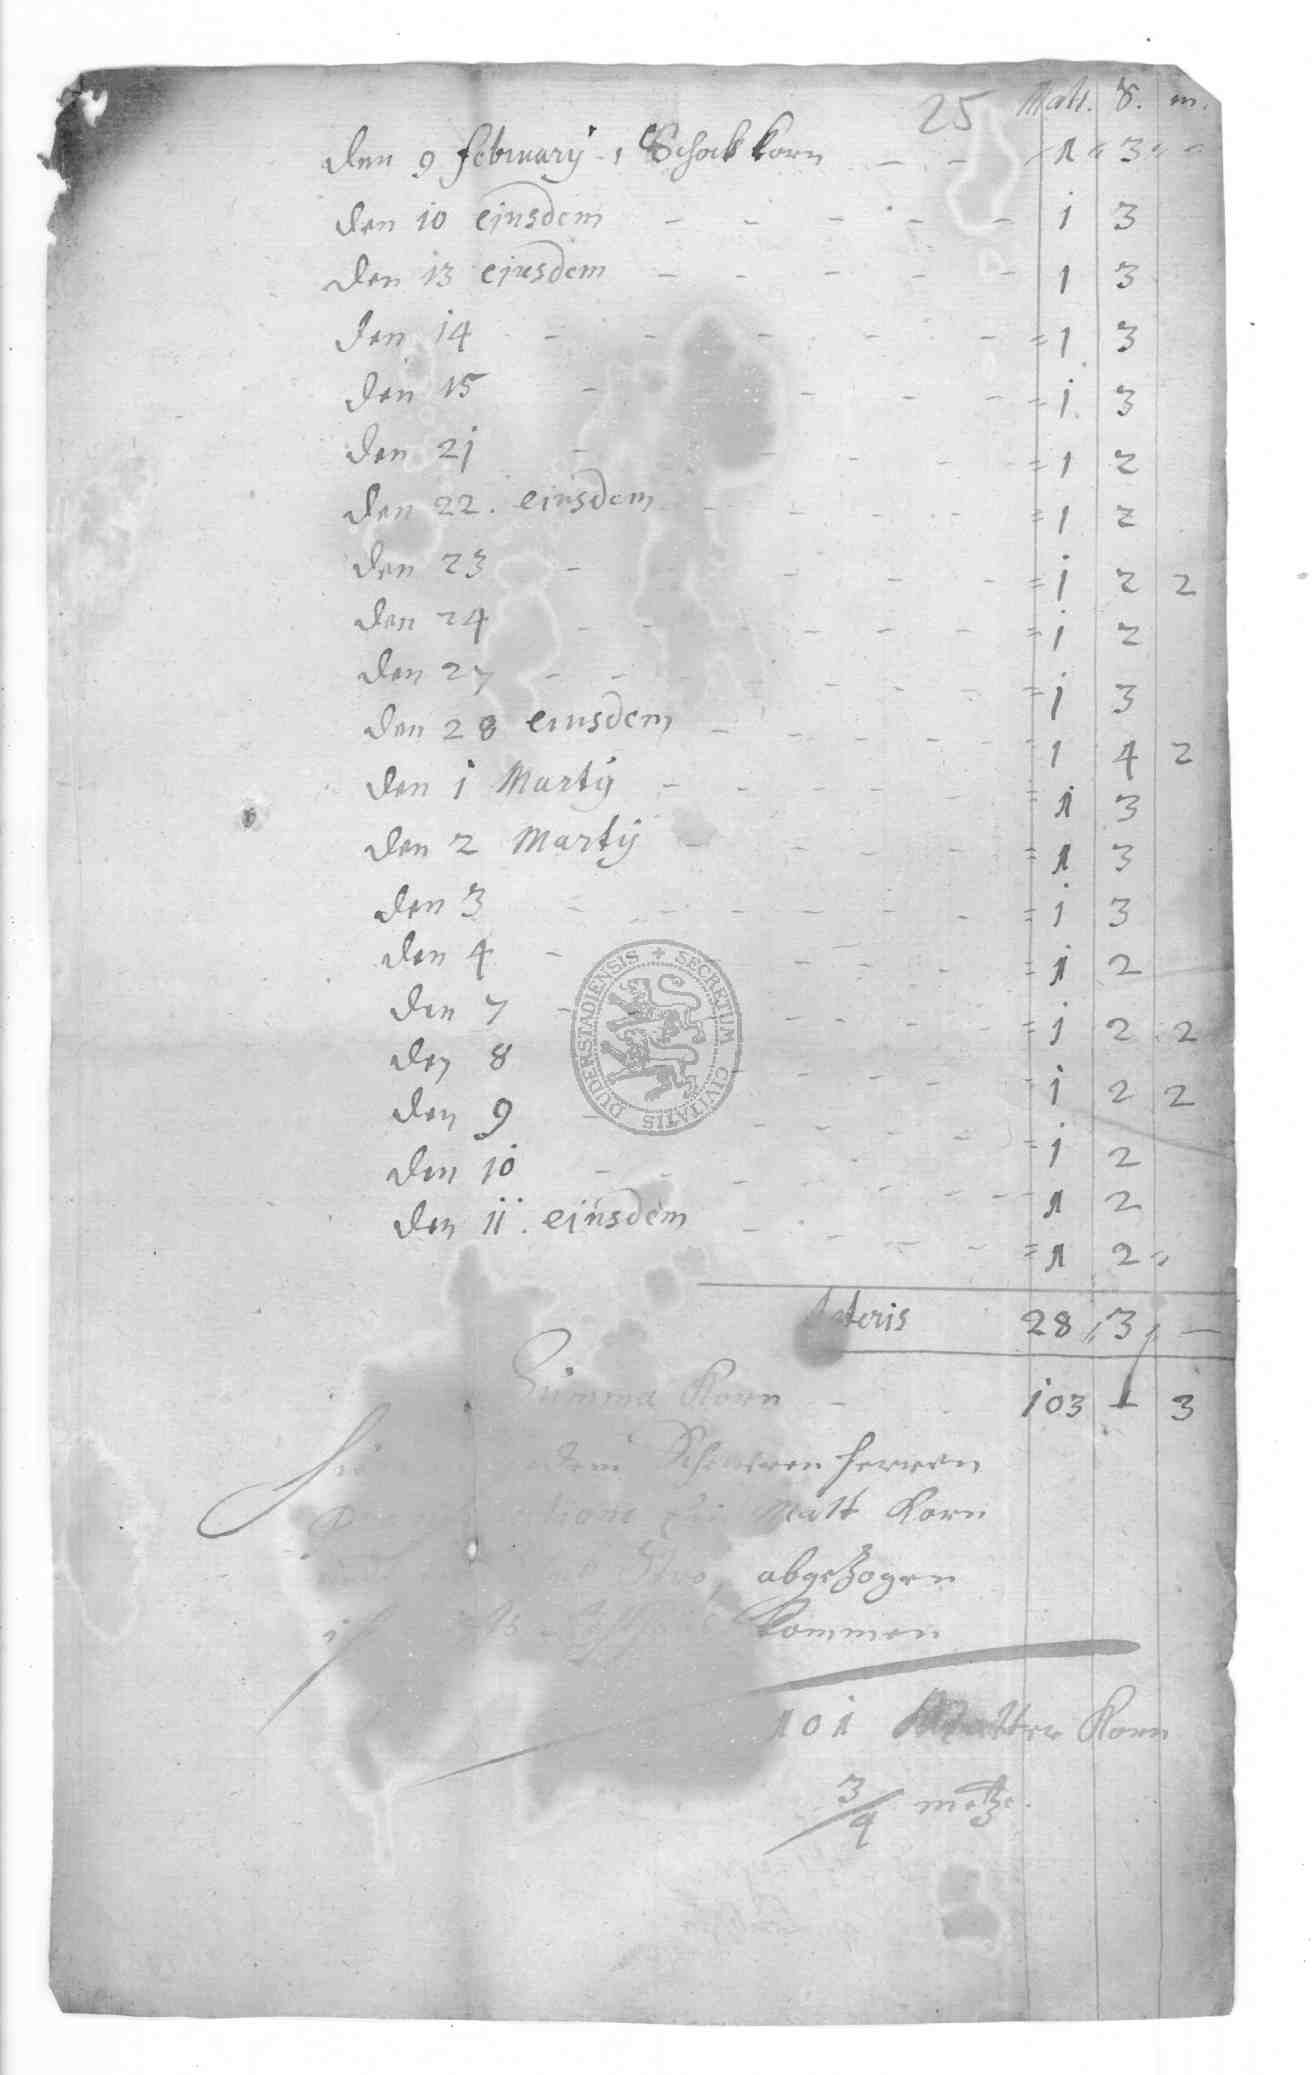 25 Malt. S. m.
den 9 february 1 Schock korn - - 1 " 3 " "
den 10 ejusdem - - - - - 1 3
den 13 ejusdem - - - - - 1 3
den 14 - - - - - = 1 3
den 15 - - - - = 1 3
den 21 - - - - = 1 2
den 22. ejusdem - - - = 1 2
den 23 - - - = 1 2 2
den 24 - - - - - = 1 2
den 27 - - - - - = 1 3
den 28 ejusdem - - - - - 1 4 2
den 1 Marty - - - - - = 1 3
den 2 Marty - - - - = 1 3
den 3 - - - - - = 1 3
den 4 - - - - = 1 2
den 7 - - - - = 1 2 2
den 8 - - - - 1 2 2
den 9 - - - - = 1 2
den 10 - - - - - 1 2
den 11. ejusdem - - - - = 1 2 "
Lateris 28 " 3 " -
Summa Korn - 103 - 3
dem Scheuren herren
Malt Korn
Stro, abgezogen
kommen
101 Malter Korn
3/4 metze.
DUDERSTADIENSIS + SECRETUM CIVITATIS